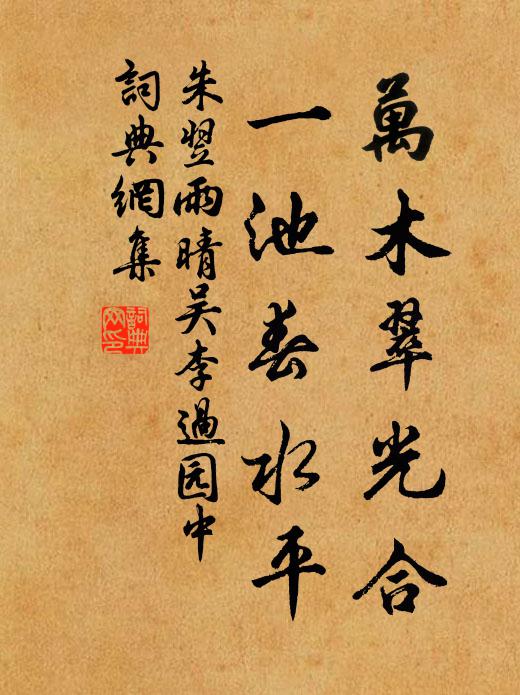 萬木翠光合
一池春水平
朱翌雨晴吴李過园中
詞典網集
詞典網印